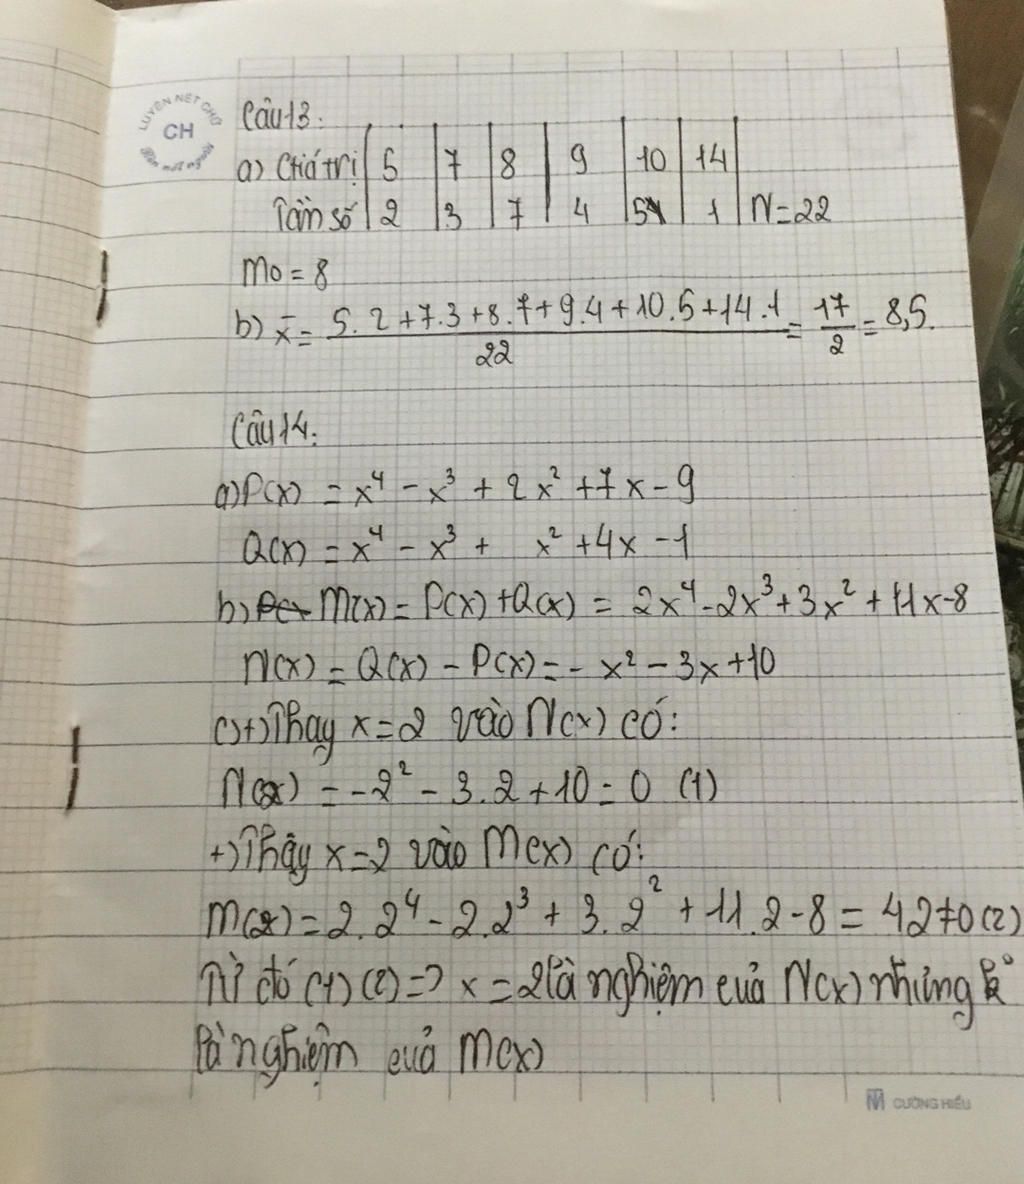 LUYỆN NÉT CHỮ
CH
Câu 13:
a) Giá trị | 5 | 7 | 8 | 9 | 10 | 14 |
Tần số | 2 | 3 | 7 | 4 | 5 | 1 | N=22
Mo = 8
b) x̄ = (5.2+7.3+8.7+9.4+10.5+14.1)/22 = 17/2 = 8,5.
Câu 14:
a) P(x) = x⁴ - x³ + 2x² + 7x - 9
Q(x) = x⁴ - x³ + x² + 4x - 1
b) M(x) = P(x) + Q(x) = 2x⁴ - 2x³ + 3x² + 11x - 8
N(x) = Q(x) - P(x) = - x² - 3x + 10
c) +) Thay x = 2 vào N(x) có:
N(2) = -2² - 3.2 + 10 = 0 (1)
+) Thay x = 2 vào M(x) có:
M(2) = 2.2⁴ - 2.2³ + 3.2² + 11.2 - 8 = 42 ≠ 0 (2)
Từ đó (1) (2) => x = 2 là nghiệm của N(x) nhưng k°
là nghiệm của M(x)
CƯỜNG HIẾU